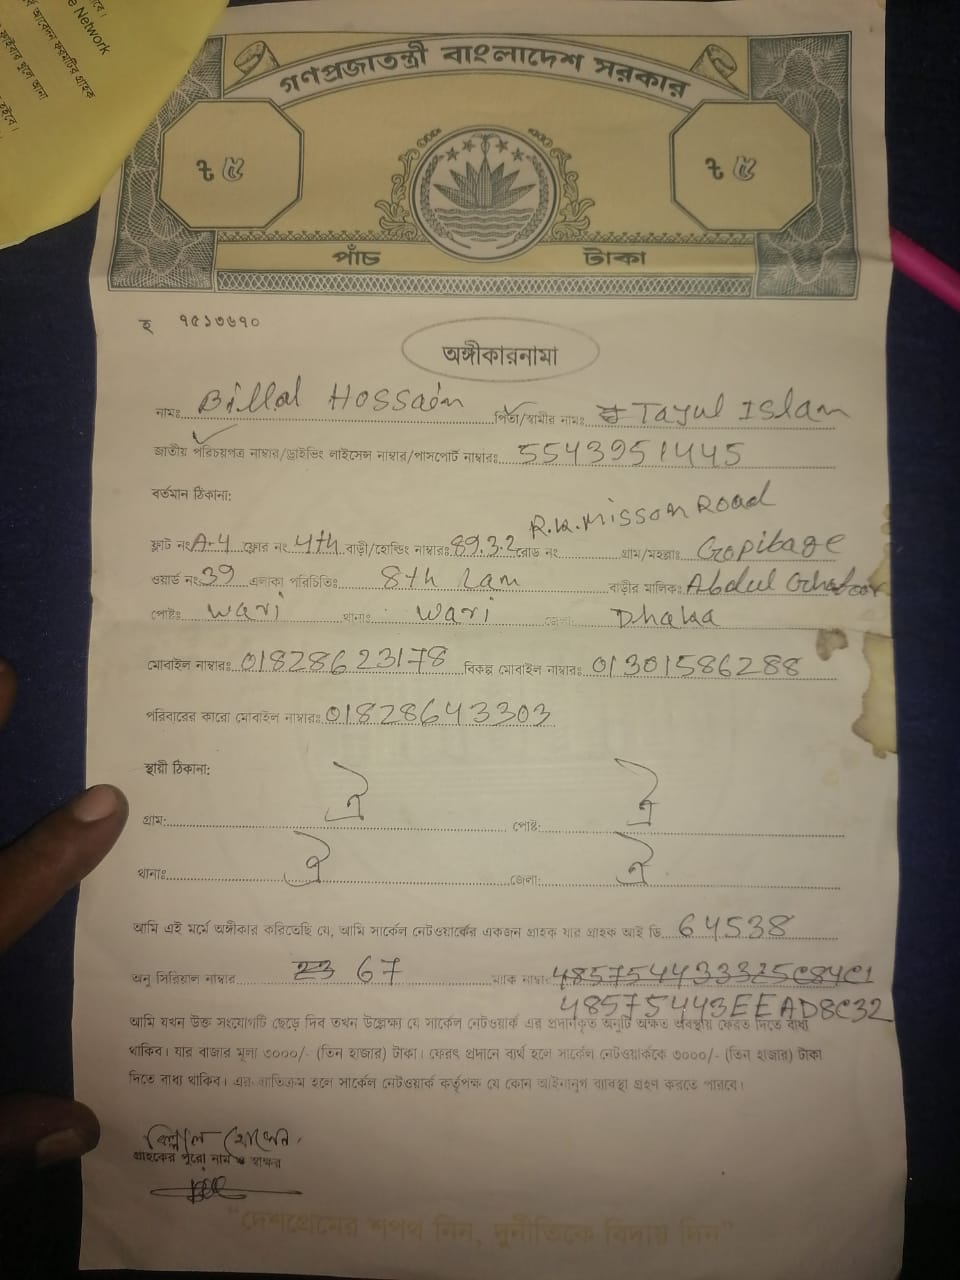 e Network
আবেদন ফরমটির গ্রাহক
হইবে।
গণপ্রজাতন্ত্রী বাংলাদেশ সরকার
৳ ৫
৳ ৫
পাঁচ টাকা
হ ৭৫১৩৬৭০
অঙ্গীকারনামা
নামঃ Billal Hossain পিতা/স্বামীর নামঃ Tajul Islam
জাতীয় পরিচয়পত্র নাম্বার/ড্রাইভিং লাইসেন্স নাম্বার/পাসপোর্ট নাম্বারঃ 5543951445
বর্তমান ঠিকানা:
R.K. Misson Road
ফ্লাট নং A-4 ফ্লোর নং 4th বাড়ী/হোল্ডিং নাম্বারঃ 89.3.2 রোড নং গ্রাম/মহল্লাঃ Gopibage
ওয়ার্ড নং 39 এলাকা পরিচিতিঃ 8th Lam বাড়ীর মালিকঃ Abdul
পোষ্টঃ Wari থানাঃ Wari জেলাঃ Dhaka
মোবাইল নাম্বারঃ 01828623178 বিকল্প মোবাইল নাম্বারঃ 01301586288
পরিবারের কারো মোবাইল নাম্বারঃ 01828643303
স্থায়ী ঠিকানা:
গ্রাম: ঐ পোষ্ট: ঐ
থানাঃ ঐ জেলা: ঐ
আমি এই মর্মে অঙ্গীকার করিতেছি যে, আমি সার্কেল নেটওয়ার্কের একজন গ্রাহক যার গ্রাহক আই ডি 64538
অনু সিরিয়াল নাম্বার 23 67 ম্যাক নাম্বার 4857544333325C84C1
48575443EEAD8C32
আমি যখন উক্ত সংযোগটি ছেড়ে দিব তখন উল্লেক্ষ্য যে সার্কেল নেটওয়ার্ক এর প্রদানকৃত অনুটি অক্ষত অবস্থায় ফেরত দিতে বাধ্য
থাকিব। যার বাজার মূল্য ৩০০০/- (তিন হাজার) টাকা। ফেরৎ প্রদানে ব্যর্থ হলে সার্কেল নেটওয়ার্ককে ৩০০০/- (তিন হাজার) টাকা
দিতে বাধ্য থাকিব। এর ব্যতিক্রম হলে সার্কেল নেটওয়ার্ক কর্তৃপক্ষ যে কোন আইনানুগ ব্যবস্থা গ্রহণ করতে পারবে।
বিল্লাল হোসেন
গ্রাহকের পুরো নাম ও স্বাক্ষর
"দেশপ্রেমের শপথ নিন, দুর্নীতিকে বিদায় দিন"